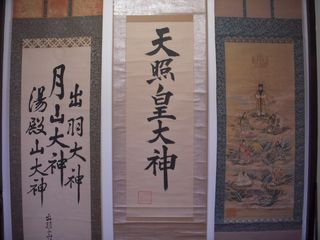 出羽大神
月山大神
湯殿山大神
天照皇大神